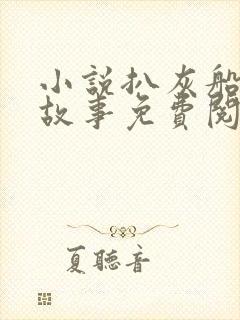 小說扒灰船
故事免費閱
夏聽音